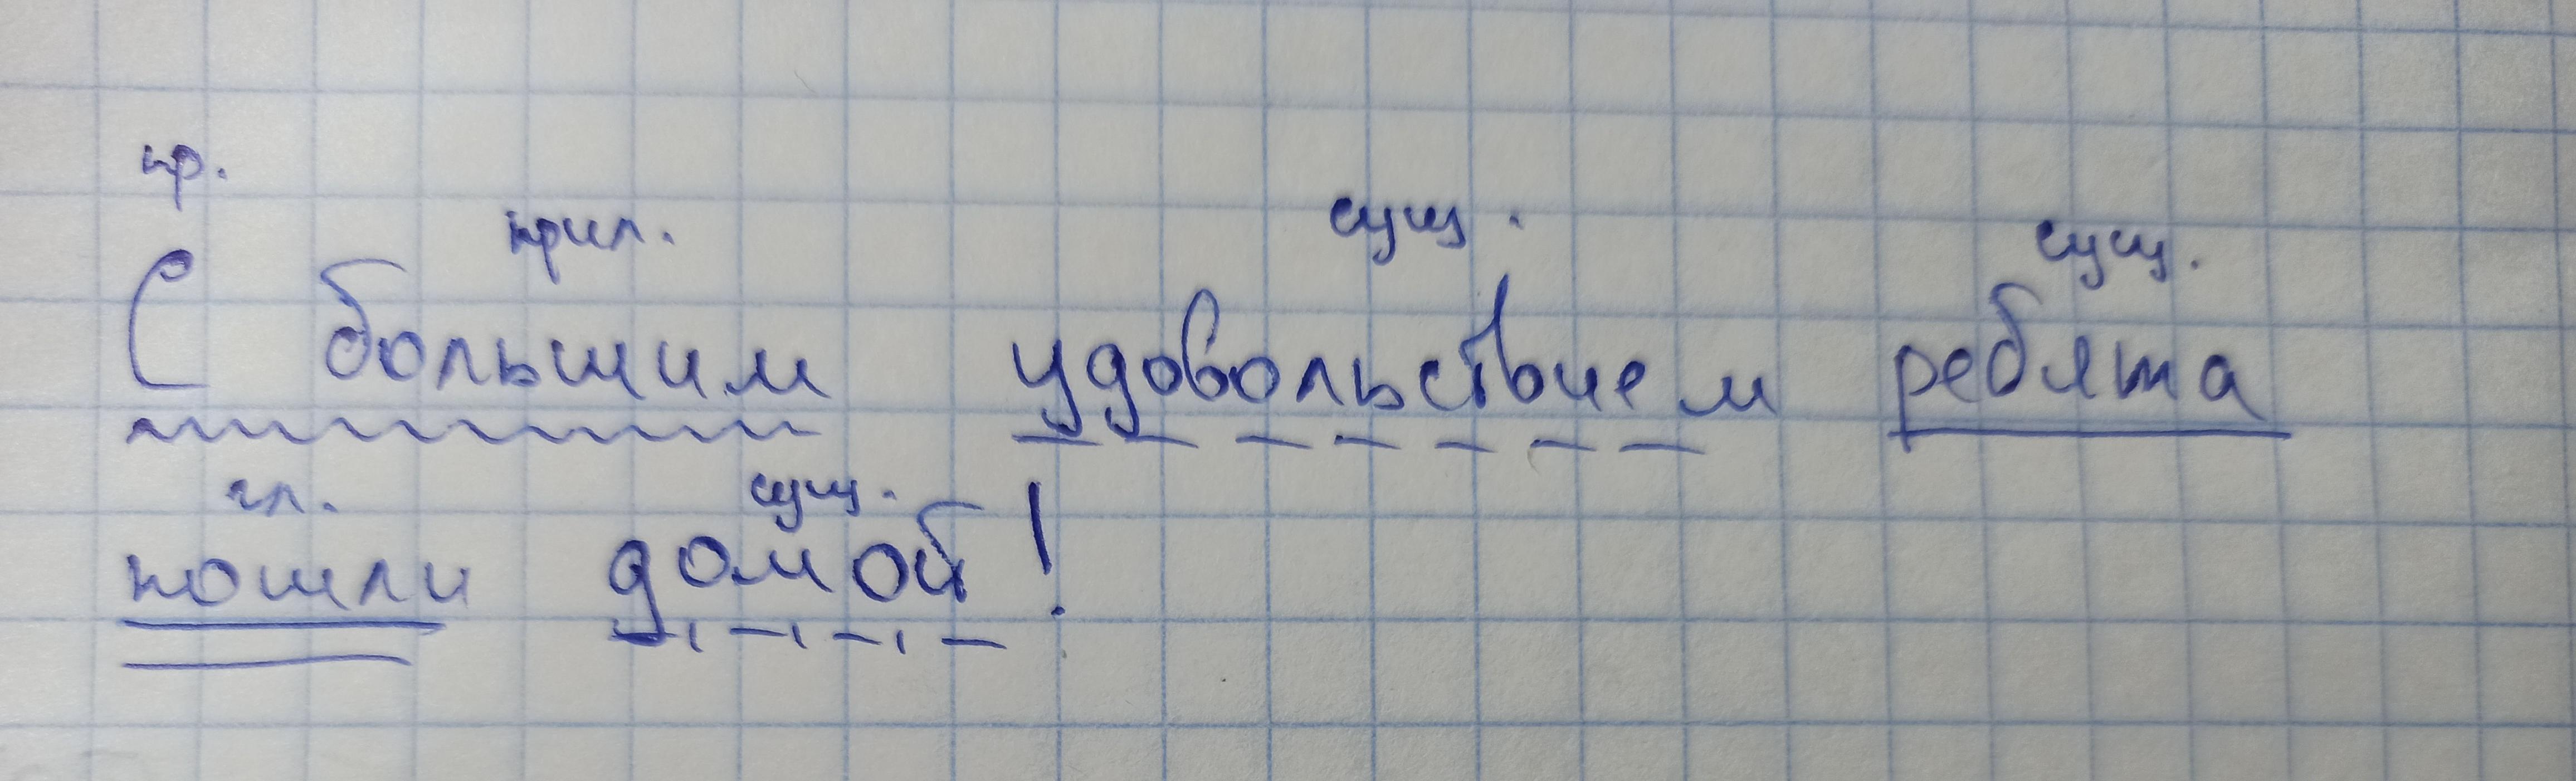 пр. прил. сущ. сущ.
С большим удовольствием ребята
гл. сущ.
пошли домой!